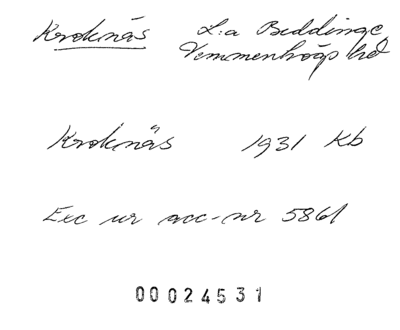 Kroknäs L:a Beddinge,
Vemmenhögs hd
Kroknäs 1931 Kb
Exc ur acc-nr 5861
00024531